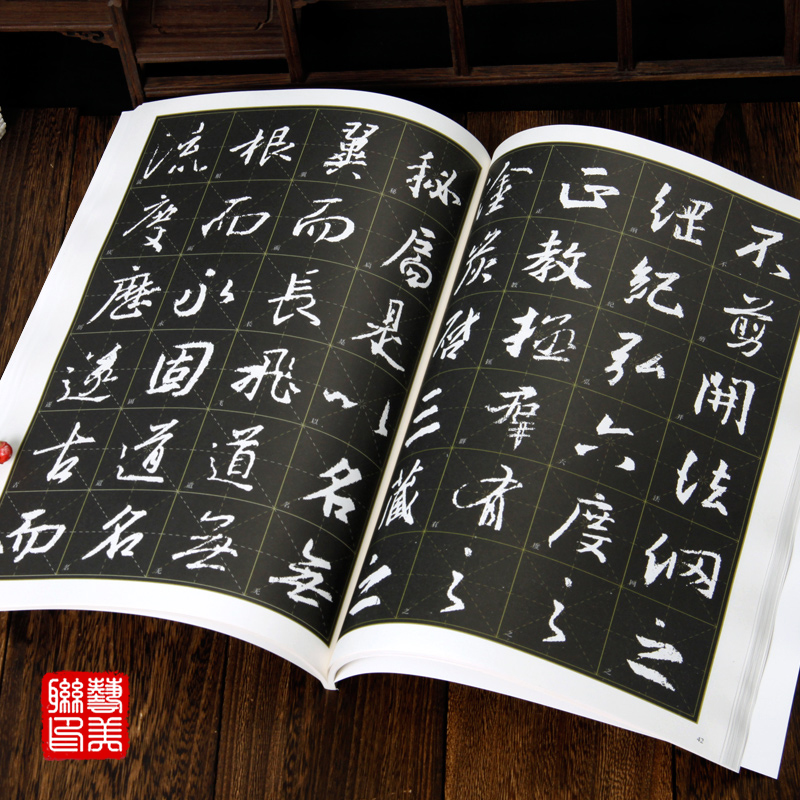 不剪開法網之
綱紀弘六度之
正教拯群有之
塗炭啓三藏之
秘扃是以名無
翼而長飛道無
根而永固道名
流慶歷遂古而
42
藝美
聯印